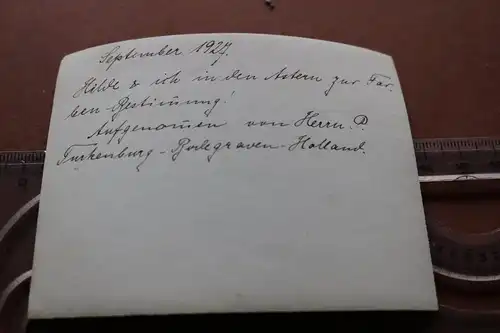 September 1927.
Hilde & ich in den Astern zur Far-
ben-Bestimung!
Aufgenomen von Herrn P.
Turkenburg - Bodegraven - Holland.